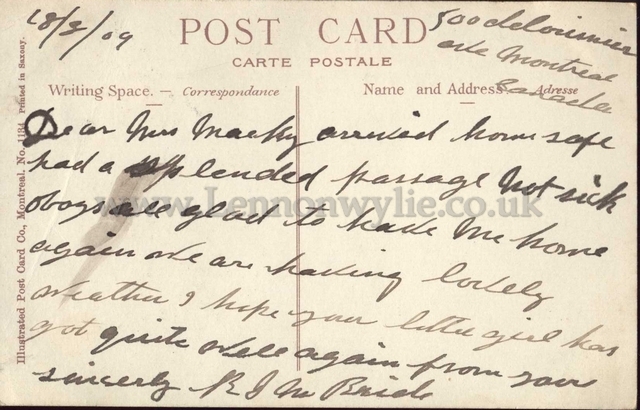 18/8/09
POST CARD
CARTE POSTALE
500 deLorimier
ave Montreal
Canada
Writing Space. — Correspondance
Name and Address — Adresse
Dear Mrs Macky arrived home safe
had a splended passage Not sick
boys all glad to have Me home
again We are having lovely
weather I hope your little girl has
got quite well again from your
sincerly R J McBride
Illustrated Post Card Co., Montreal. No. 1134 Printed in Saxony.
www.Lennonwylie.co.uk